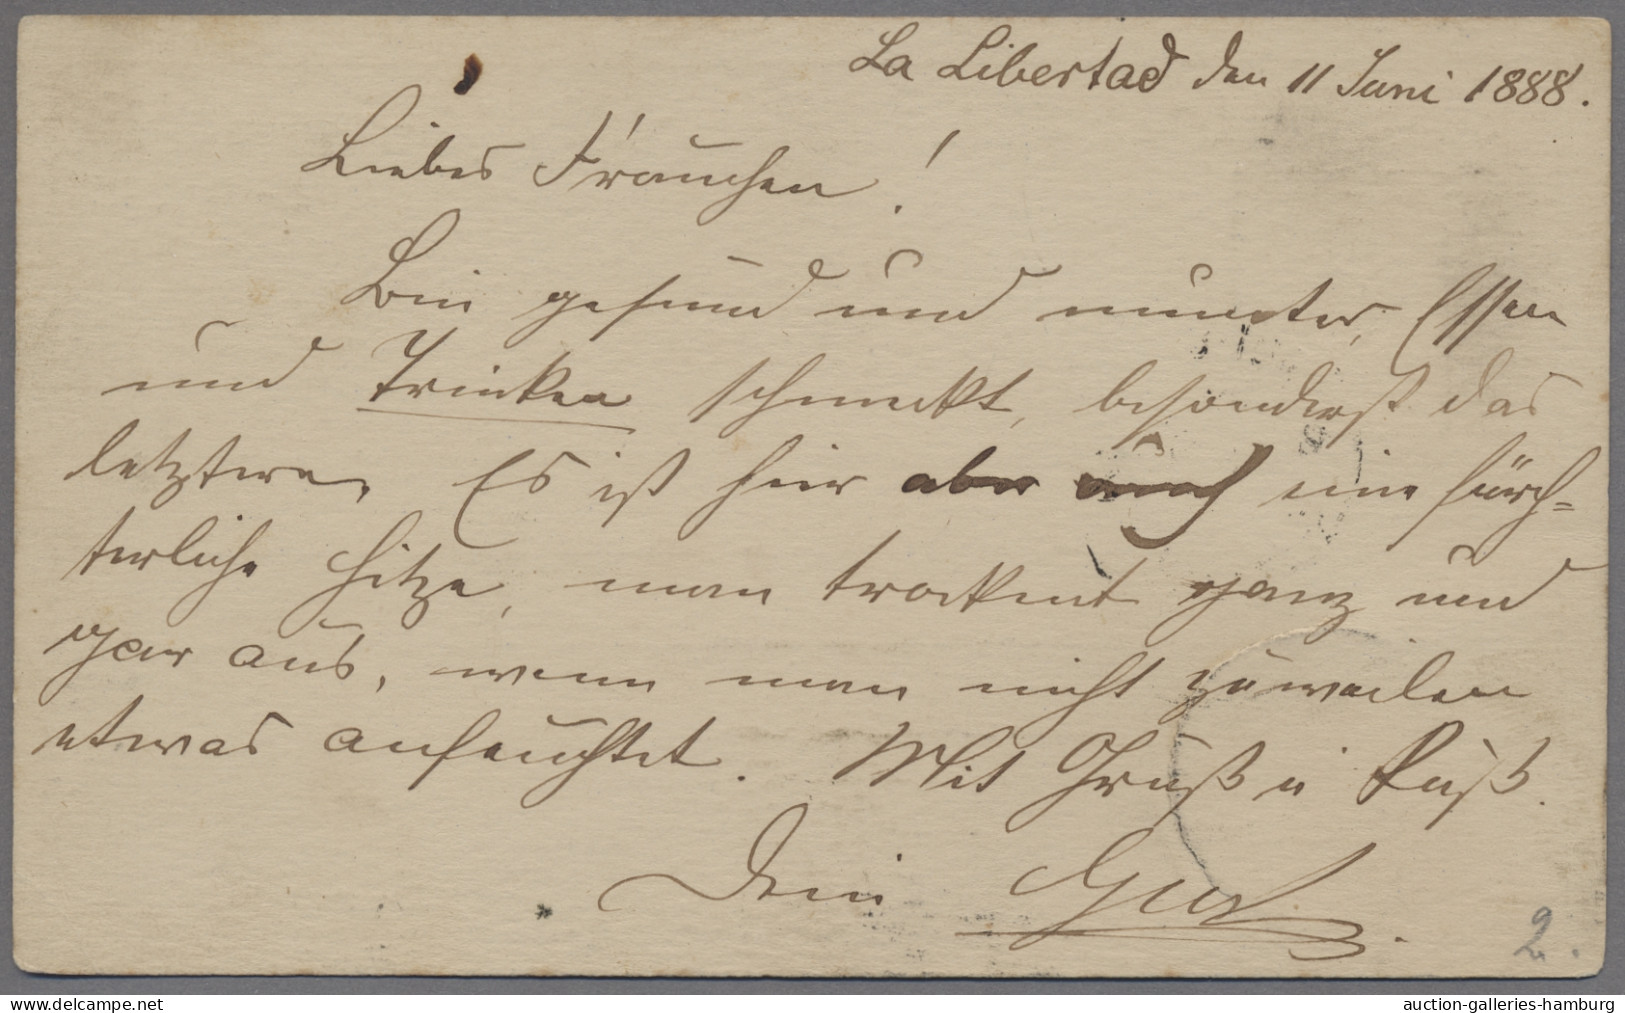 La Libertad den 11 Juni 1888.
Liebes Frauchen!
Bin gesund und munter, Essen
und Trinken schmeckt, besonderst das
letztere. Es ist hier aber auch eine fürch=
terliche Hitze, man trocknet ganz und
gar aus, wenn man nicht zuweilen
etwas anfeuchtet. Mit Gruß u Kuß.
Dein
2.
delcampe.net
auction-galleries-hamburg